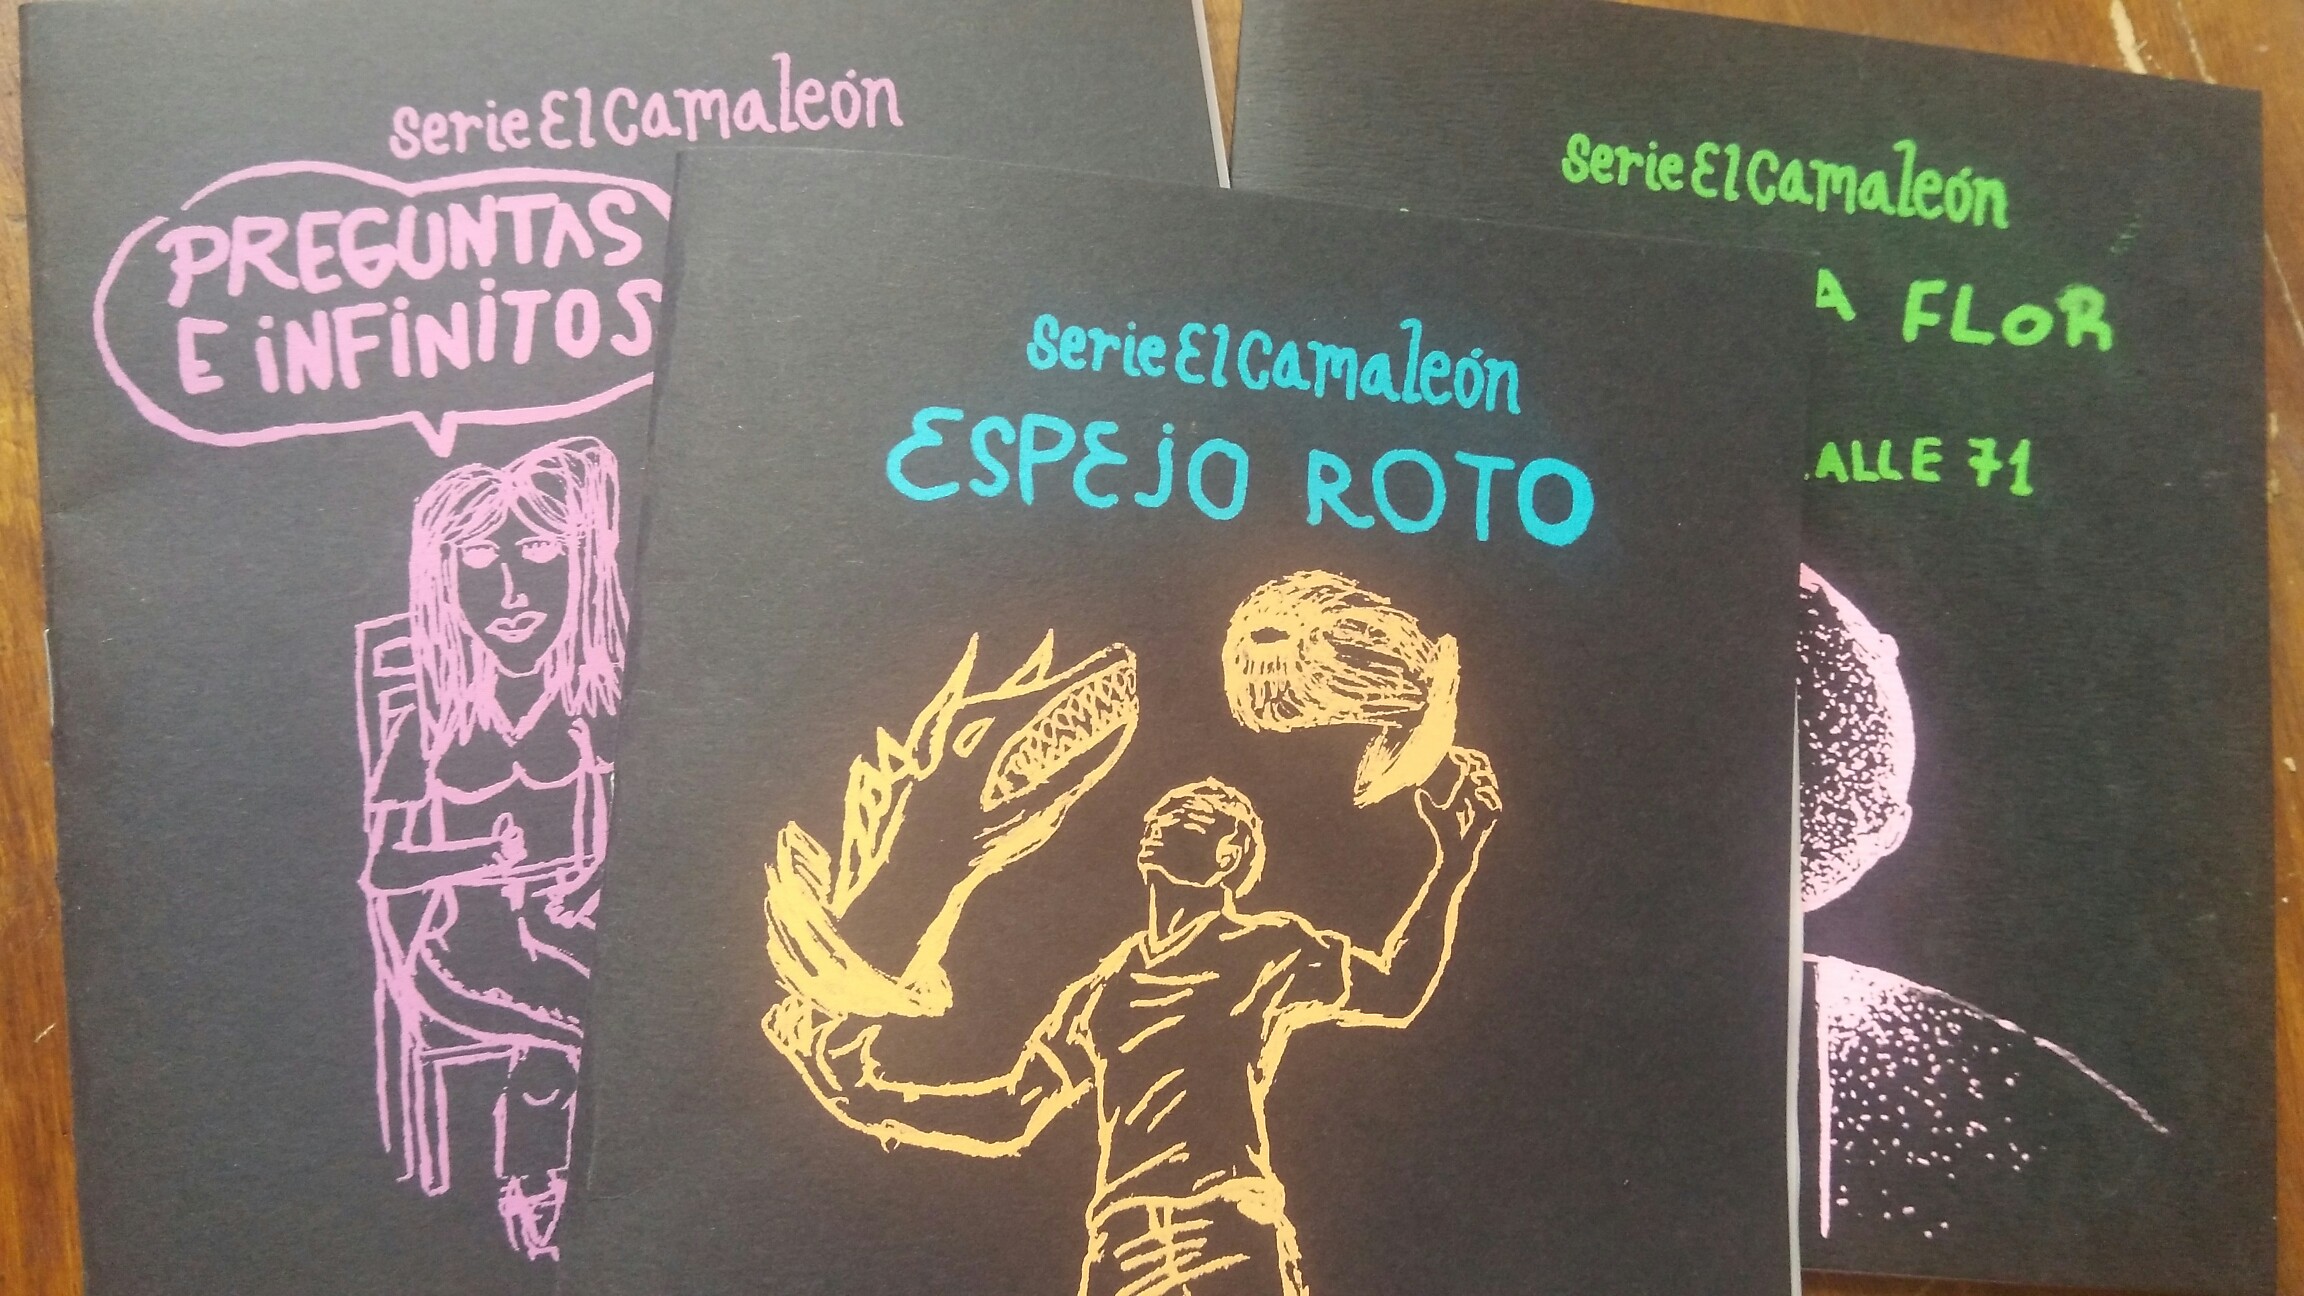 serie El Camaleón
PREGUNTAS
E iNFiNiTOS
serie El Camaleón
ESPEjO ROTO
serie El Camaleón
A FLOR
ALLE 71